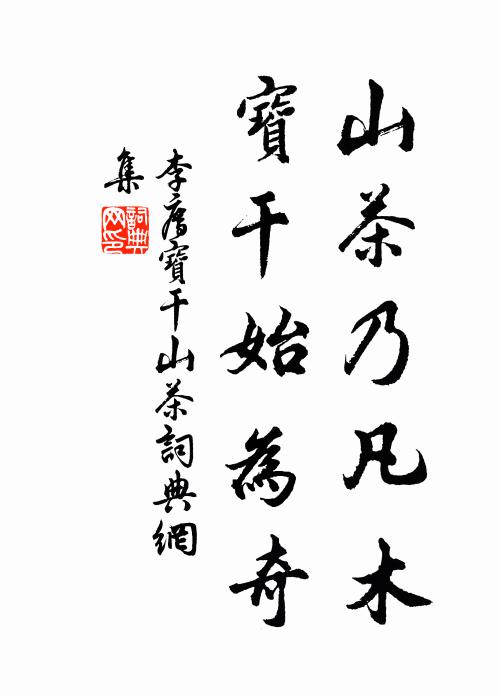 山茶乃凡木
寶干始為奇
李廌寶干山茶詞典網
集
詞典
网印